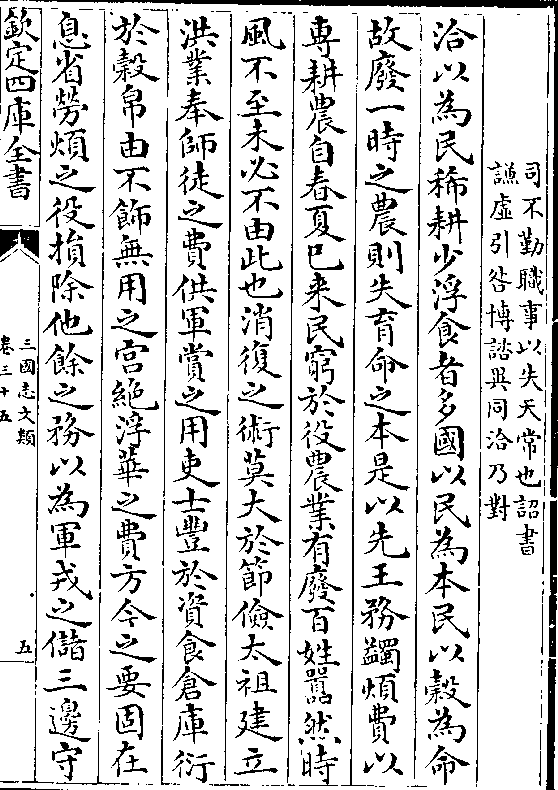 司不勤職事以失天常也詔書
謙虛引咎博諮異同洽乃對
洽以為民稀耕少浮食者多國以民為本民以穀為命
故廢一時之農則失育命之本是以先王務蠲煩費以
専耕農自春夏已来民窮於役農業有廢百姓嚚然時
風不至未必不由此也消復之術莫大於節儉太祖建立
洪業奉師徒之費供軍賞之用吏士豐於資食倉庫衍
於穀帛由不飾無用之宫絶浮華之費方今之要固在
息省勞煩之役損除他餘之務以為軍戎之儲三邊守
欽定四庫全書
三國志文類
卷三十五
五